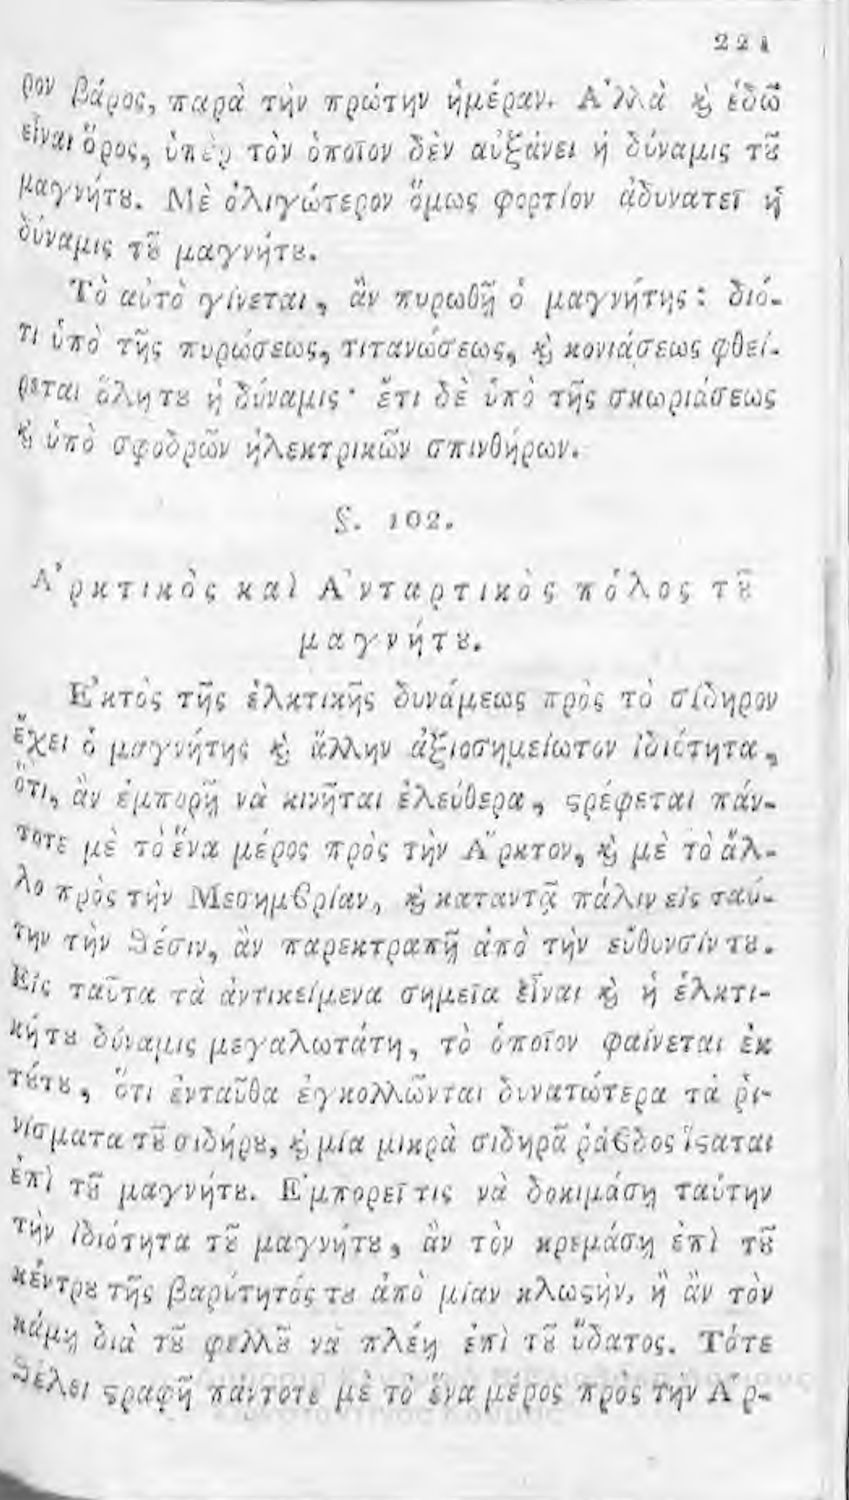 221
ρον βάρος, παρὰ τὴν πρώτην ἡμέραν. Α᾿λλὰ ϗ̀ ἐδῶ
εἶναι ὅρος, ὑπὲρ τὸν ὁποῖον δὲν αὐξάνει ἡ δύναμις τȣ͂
μαγνήτȣ. Μὲ ὀλιγώτερον ὅμως φορτίον ἀδυνατεῖ ἡ
δύναμις τȣ͂ μαγνήτȣ.
Τὸ αὐτὸ γίνεται, ἂν πυρωθῇ ὁ μαγνήτης: διό-
τι ὑπὸ τῆς πυρώσεως, τιτανώσεως, ϗ̀ κονιάσεως φθεί-
ρεται ὅλη τȣ ἡ δύναμις· ἔτι δὲ ὑπὸ τῆς σκωριάσεως
ϗ̀ ὑπὸ σφοδρῶν ἠλεκτρικῶν σπινθήρων.
§. 102.
Α᾿ρκτικὸς καὶ Α᾿νταρτικὸς πόλος τȣ͂
μαγνήτȣ.
Ε᾿κτὸς τῆς ἑλκτικῆς δυνάμεως πρὸς τὸ σίδηρον
ἔχει ὁ μαγνήτης ϗ̀ ἄλλην ἀξιοσημείωτον ἰδιότητα,
ὅτι, ἂν ἐμπορῇ νὰ κινῆται ἐλεύθερα, ϛρέφεται πάν-
τοτε μὲ τὸ ἕνα μέρος πρὸς τὴν Α῎ρκτον, ϗ̀ μὲ τὸ ἄλ-
λο πρὸς τὴν Μεσημβρίαν, ϗ̀ καταντᾷ πάλιν εἰς ταύ-
την τὴν θέσιν, ἂν παρεκτραπῇ ἀπὸ τὴν εὔθυνσίν τȣ.
Εἰς ταῦτα τὰ ἀντικείμενα σημεῖα εἶναι ϗ̀ ἡ ἑλκτι-
κή τȣ δύναμις μεγαλωτάτη, τὸ ὁποῖον φαίνεται ἐκ
τȣ́τȣ, ὅτι ἐνταῦθα ἐγκολλῶνται δυνατώτερα τὰ ῥι-
νίσματα τȣ͂ σιδήρȣ, ϗ̀ μία μικρὰ σιδηρᾶ ῥάβδος ἵϛαται
ἐπὶ τȣ͂ μαγνήτȣ. Ε᾿μπορεῖ τις νὰ δοκιμάσῃ ταύτην
τὴν ἰδιότητα τȣ͂ μαγνήτȣ, ἂν τὸν κρεμάσῃ ἐπὶ τȣ͂
κέντρȣ τῆς βαρύτητός τȣ ἀπὸ μίαν κλωϛὴν, ἢ ἂν τὸν
κάμῃ διὰ τȣ͂ φελλȣ͂ νὰ πλέῃ ἐπὶ τȣ͂ ὕδατος. Τότε
θέλει ϛραφῇ πάντοτε μὲ τὸ ἕνα μέρος πρὸς τὴν Α῎ρ-